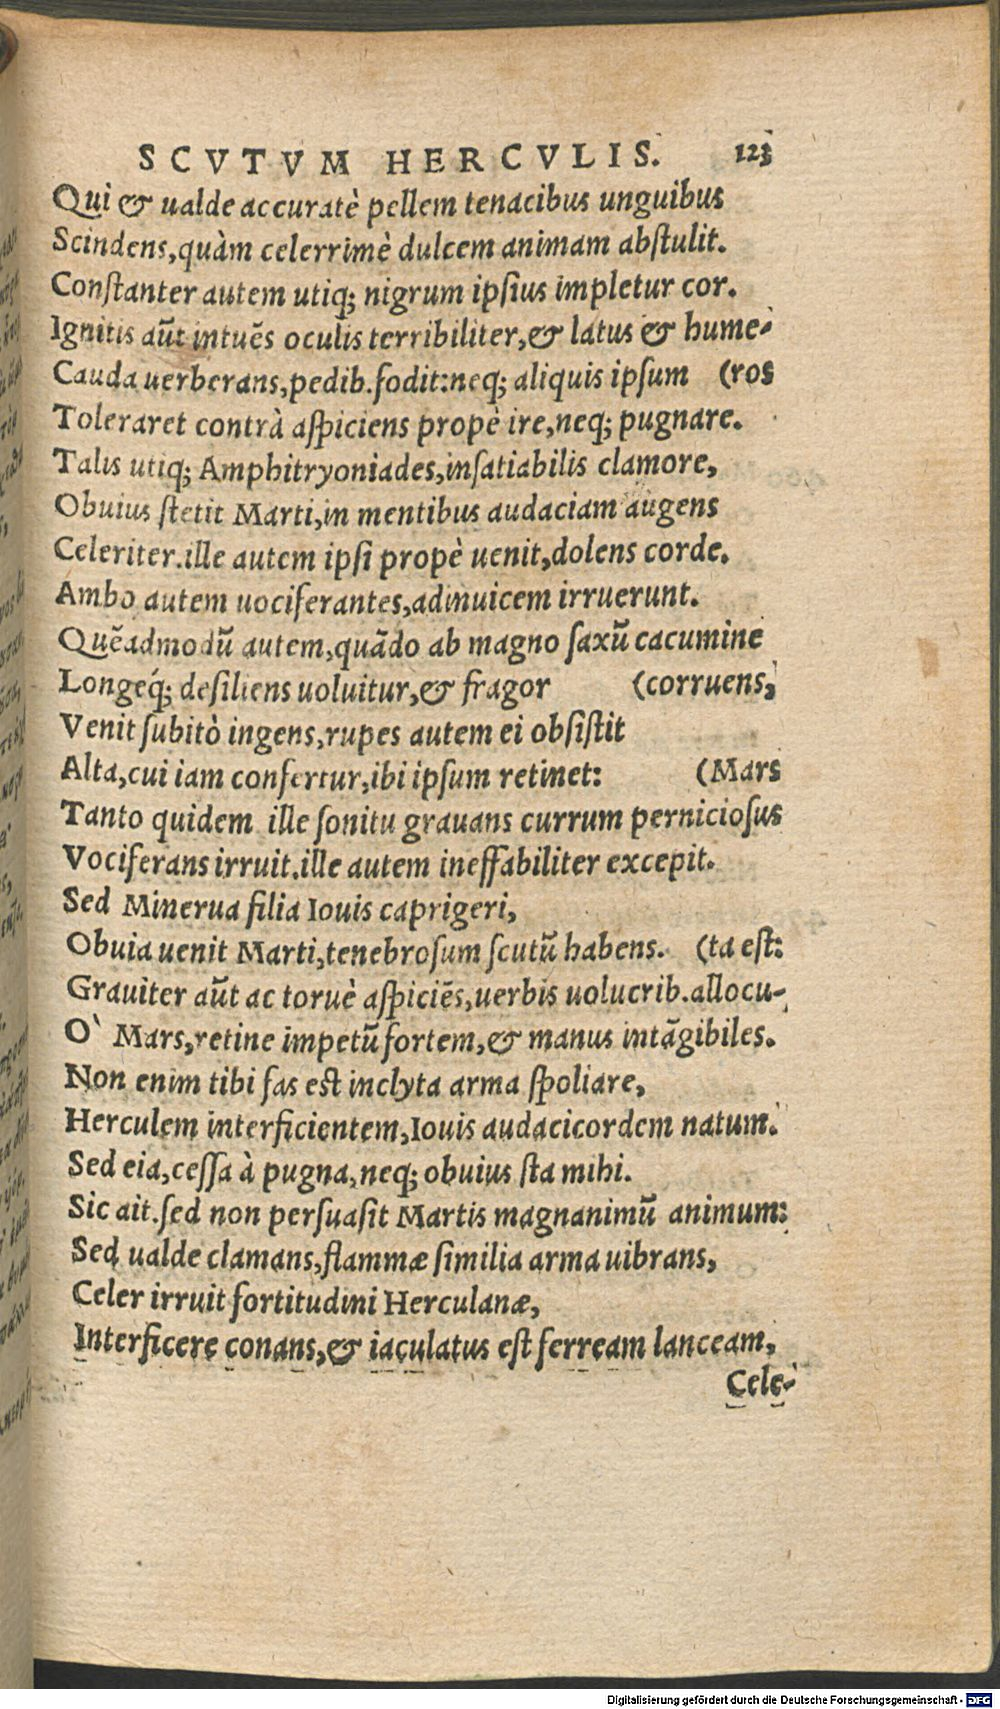 SCVTVM HERCVLIS. 123
Qui & ualde accuratè pellem tenacibus unguibus
Scindens, quàm celerrimè dulcem animam abstulit.
Constanter autem utiq; nigrum ipsius impletur cor.
Ignitis aūt intuēs oculis terribiliter, & latus & hume-
Cauda uerberans, pedib. fodit: neq; aliquis ipsum (ros
Toleraret contrà aspiciens propè ire, neq; pugnare.
Talis utiq; Amphitryoniades, insatiabilis clamore,
Obuius stetit Marti, in mentibus audaciam augens
Celeriter. ille autem ipsi propè uenit, dolens corde.
Ambo autem uociferantes, adinuicem irruerunt.
Quēadmodū autem, quādo ab magno saxū cacumine
Longeq́; desiliens uoluitur, & fragor (corruens,
Venit subitò ingens, rupes autem ei obsistit
Alta, cui iam confertur, ibi ipsum retinet: (Mars
Tanto quidem ille sonitu grauans currum perniciosus
Vociferans irruit. ille autem ineffabiliter excepit.
Sed Minerua filia Iouis caprigeri,
Obuia uenit Marti, tenebrosum scutū habens. (ta est:
Grauiter aūt ac toruè aspiciēs, uerbis uolucrib. allocu-
O` Mars, retine impetū fortem, & manus intāgibiles.
Non enim tibi fas est inclyta arma spoliare,
Herculem interficientem, Iouis audacicordem natum.
Sed eia, cessa à pugna, neq; obuius sta mihi.
Sic ait. sed non persuasit Martis magnanimū animum:
Sed ualde clamans, flammæ similia arma uibrans,
Celer irruit fortitudini Herculanæ,
Interficere conans, & iaculatus est ferream lanceam,
Cele-
Digitalisierung gefördert durch die Deutsche Forschungsgemeinschaft - DFG